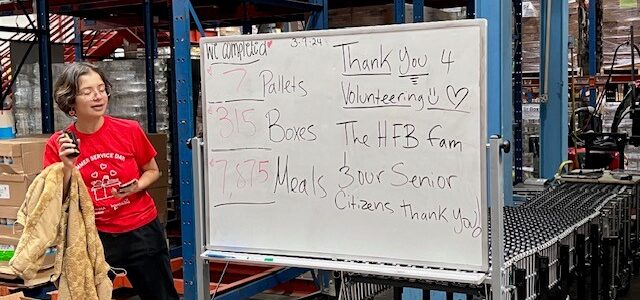 We completed 3-9-24
7 Pallets
315 Boxes
7,875 Meals
Thank You 4
Volunteering
The HFB fam
& our Senior
Citizens thank you!
SUMMER SERVICE DAY